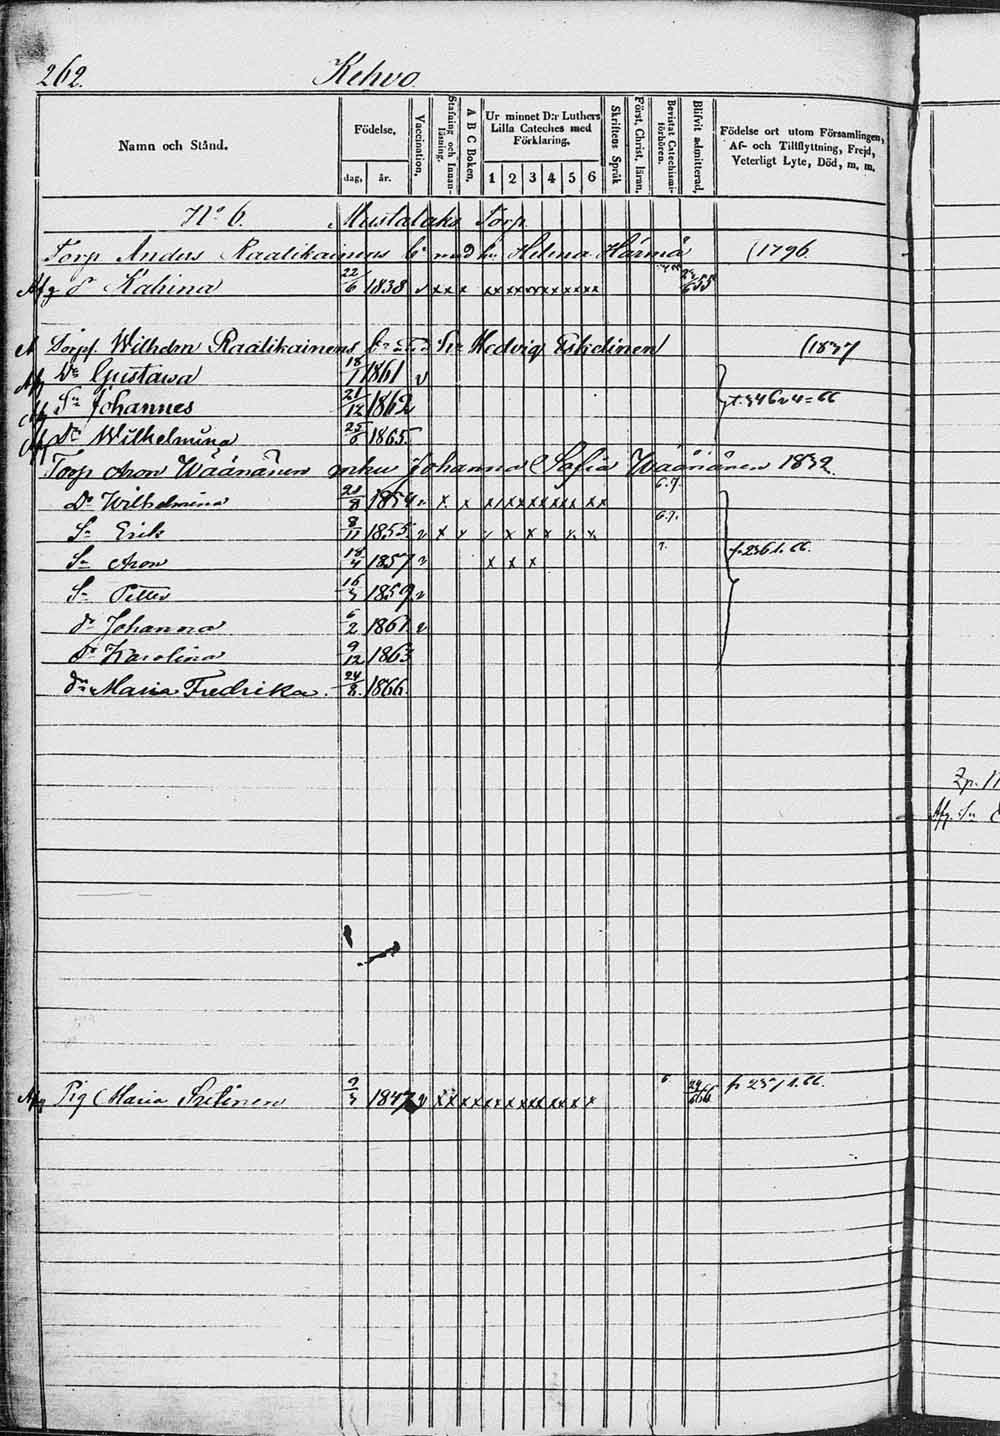 262. Kehvo
Namn och Stånd. Födelse, dag, år. Vaccination, Stafning och Innan-läsning. A B C Boken, Ur minnet D:r Luthers Lilla Cateches med Förklaring, 1 2 3 4 5 6 Skriftens Språk Först. Christ. läran, Bevistat Catechismi-förhören. Blifvit admitterad, Födelse ort utom Församlingen, Af- och Tillflyttning, Frejd, Veterligt Lyte, Död, m. m.
No 6. Mustalaks Torp
Torp Anders Raatikainens med Helena Härmä (1796
Afg dr Kahina 22/6 1838 v x x x x x x x x x x x x x
Torpf. Wilhelm Raatikainens Hedvig Eskelinen (1837
Afg Dr Gustawa 18/1 1861 v
Afg Sn Johannes 21/12 1862
Afg Dr Wilhelmina 25/6 1865.
Torp Aron Wäänänen Johanna Sofia Wäänänen 1832.
Dr Wilhelmina 21/8 1854 v x x x x x x x x x x x x 6.7.
Sn Erik 8/11 1855. v x x x x x x x x 6.7.
Sn Aron 18/4 1857 v x x x 7. fr 236 1. 66.
Sn Petter 16/3 1859 v
dr Johanna 6/2 1861. v
dr Karolina 9/12 1863
dr Maria Fredrika. 24/8. 1866.
Afg Pig Maria 9/3 1847 v x x x x x x x x x x x x x 6. 24/6 66